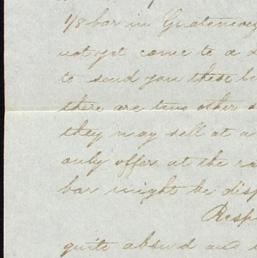 1/8 bar in
not yet come to a
to send you these
there are two other
they may sell at a
only offer at the
bar might be disp
Resp
quite absurd and